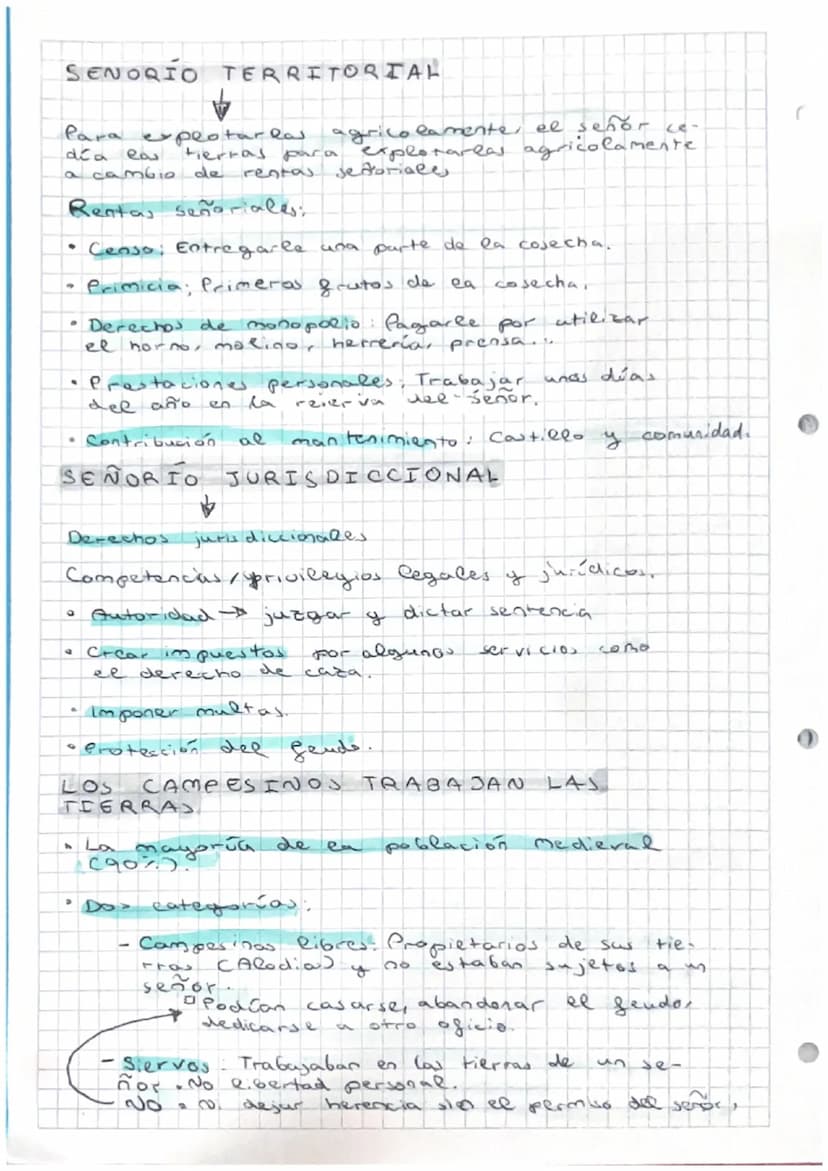 SEÑORÍO TERRITORIAL
Para explotarlas agricolamente, el señor ce-
día las tierras para explotarlas agricolamente
a cambio de rentas señoriales
Rentas señoriales:
• Censo: Entregarle una parte de la cosecha.
• Primicia: Primeros frutos de la cosecha.
• Derechos de monopolio: Pagarle por utilizar
el horno, molino, herrería, prensa...
• Prestaciones personales: Trabajar unos días
del año en la reserva del señor.
• Contribución al mantenimiento: Castillo y comunidad.
SEÑORÍO JURISDICCIONAL
Derechos jurisdiccionales
Competencias/privilegios legales y jurídicos.
• Autoridad → juzgar y dictar sentencia
• Crear impuestos por algunos servicios como
el derecho de caza.
• Imponer multas.
• Protección del feudo.
LOS CAMPESINOS TRABAJAN LAS
TIERRAS
• La mayoría de la población medieval
(90%).
• Dos categorías:
- Campesinos libres: Propietarios de sus tie-
rras (Alodia) y no estaban sujetos a un
señor.
Podían casarse, abandonar el feudo,
dedicarse a otro oficio.
- Siervos: Trabajaban en las tierras de un se-
ñor. No libertad personal.
NO dejar herencia sin el permiso del señor,